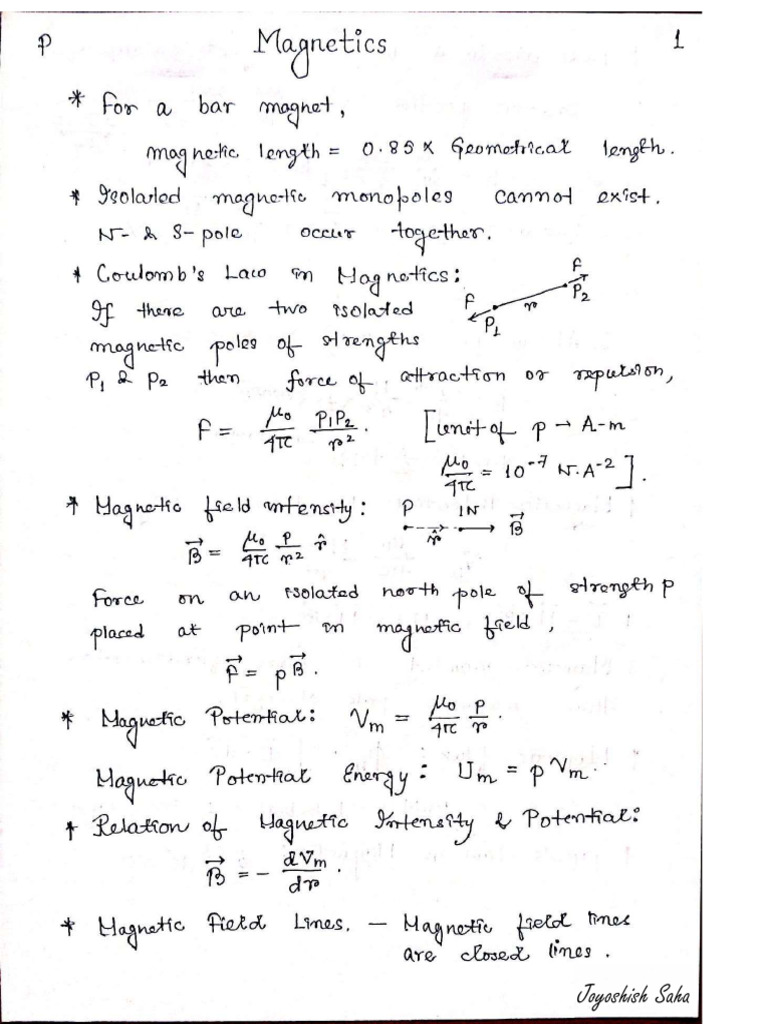 P Magnetics 1
* For a bar magnet,
magnetic length = 0.85 × Geometrical length.
* Isolated magnetic monopoles cannot exist.
N- & S-pole occur together.
* Coulomb's Law in Magnetics:
F P₁ r F P₂
If there are two isolated
magnetic poles of strengths
P₁ & P₂ then force of attraction or repulsion,
F = μ₀/4π P₁P₂/r². [unit of p → A-m
μ₀/4π = 10⁻⁷ N·A⁻²].
* Magnetic field intensity: P r̂ 1N B⃗
B⃗ = μ₀/4π p/r² r̂
Force on an isolated north pole of strength p
placed at point in magnetic field,
F⃗ = pB⃗.
* Magnetic Potential: Vₘ = μ₀/4π p/r.
Magnetic Potential Energy: Uₘ = p Vₘ.
* Relation of Magnetic Intensity & Potential:
B⃗ = - dVₘ/dr.
* Magnetic Field Lines. — Magnetic field lines
are closed lines.
Joyoshish Saha